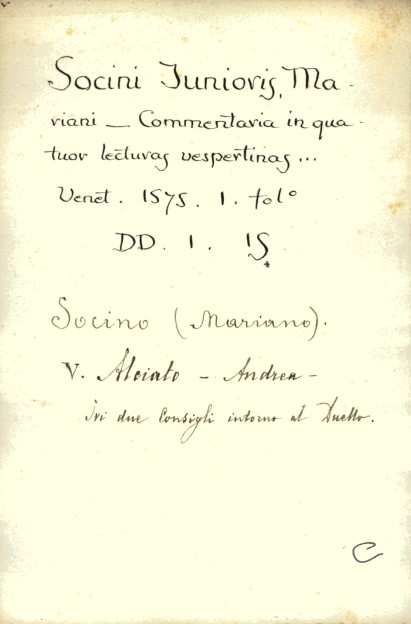 Socini Junioris, Ma-
riani — Commentaria in qua-
tuor lecturas vespertinas...
Venet. 1575. 1. folº
DD. 1. 15
Socino (Mariano).
V. Alciato - Andrea -
Ivi due Consigli intorno al Duello.
C